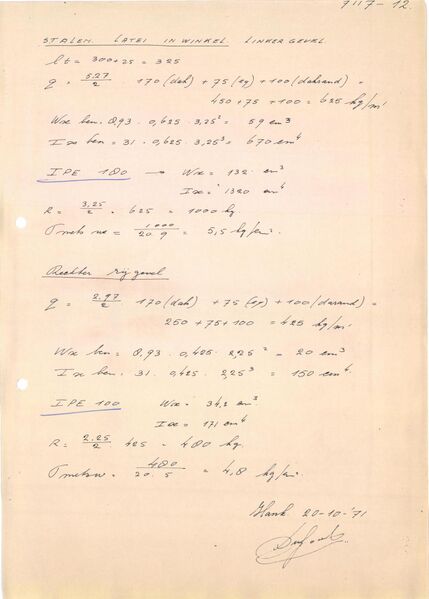 7117-12.
STALEN LATEI IN WINKEL LINKER GEVEL
lt = 300+25 = 325
q = 5.27/2 · 170 (dak) + 75 (eg) + 100 (dakrand) =
450 + 75 + 100 = 625 kg/m'
Wx ben = 0,93 · 0,625 · 3,25² = 59 cm³
Ix ben = 31 · 0,625 · 3,25³ = 670 cm⁴
IPE 180 → Wx = 132 cm³
Ix = 1320 cm⁴
R = 3,25/2 · 625 = 1000 kg.
σ metsw = 1000/20·9 = 5,5 kg/cm².
Rechter zijgevel
q = 2.97/2 170 (dak) + 75 (eg) + 100 (darand) =
250 + 75 + 100 = 425 kg/m'
Wx ben = 0,93 · 0,425 · 2,25² = 20 cm³
Ix ben = 31 · 0,425 · 2,25³ = 150 cm⁴.
IPE 100 Wx = 34,2 cm³.
Ix = 171 cm⁴
R = 2.25/2 425 = 480 kg.
σ metsw. = 480/20·5 = 4,8 kg/cm².
Hank 20-10-'71